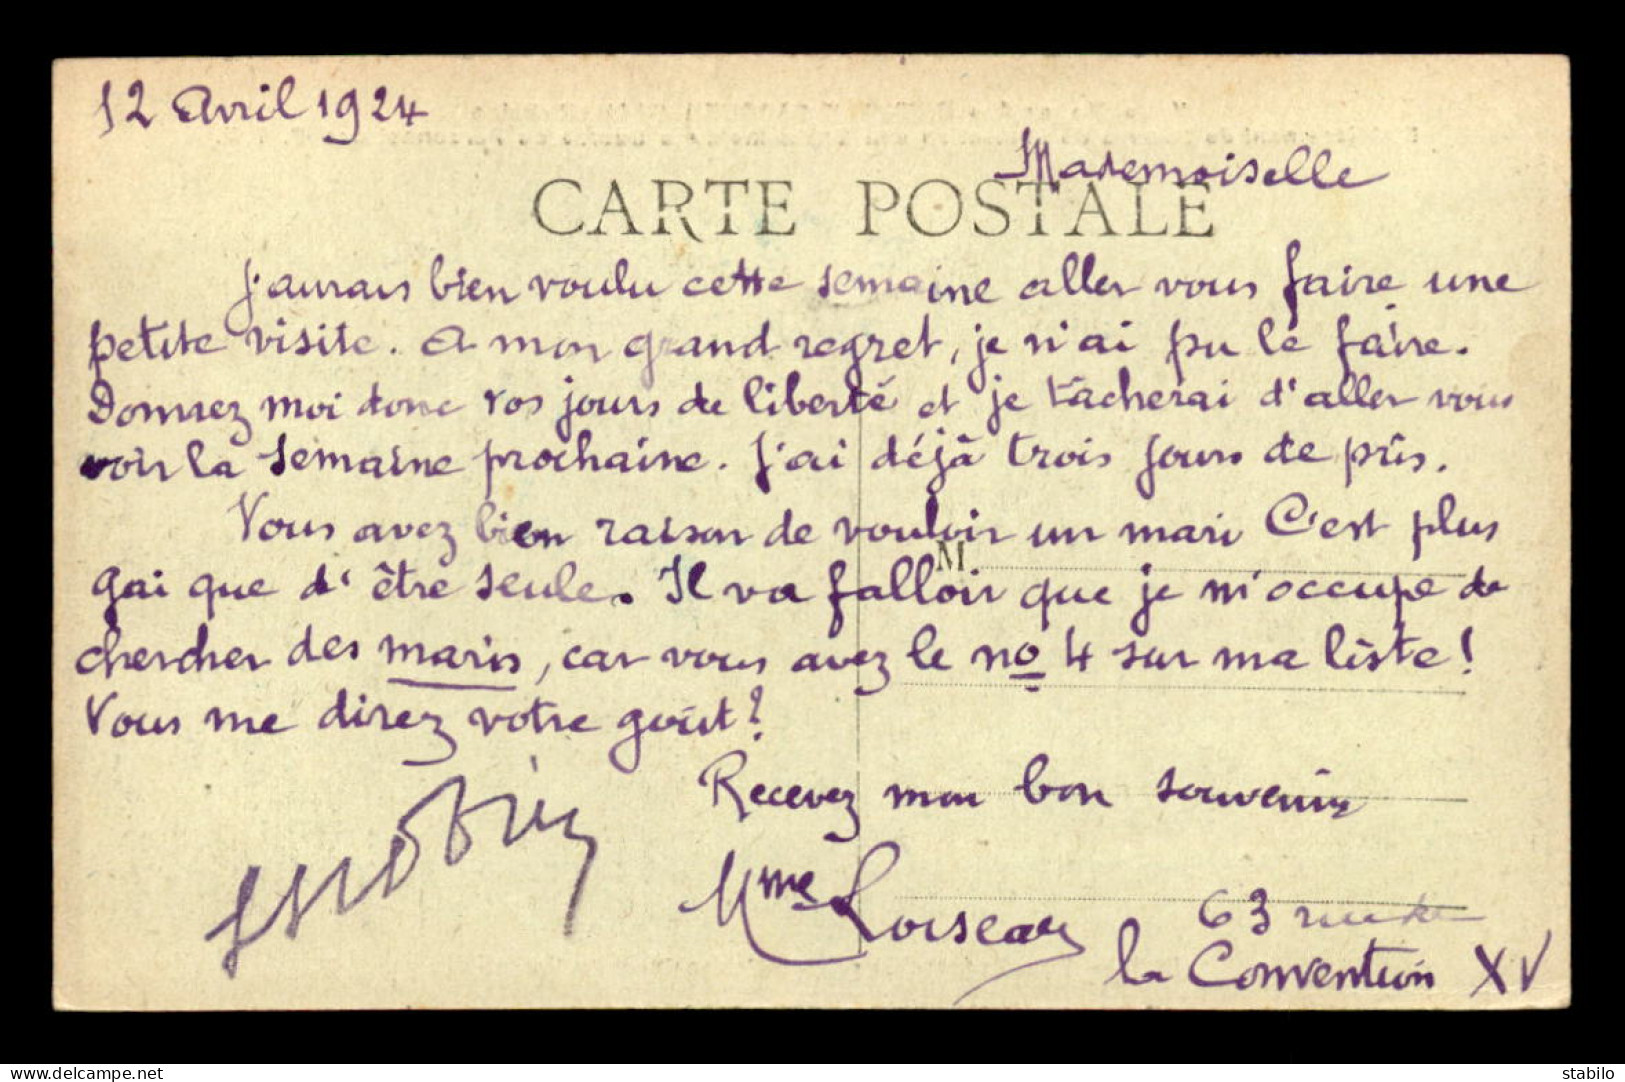 12 Avril 1924
Mademoiselle
CARTE POSTALE
J'aurais bien voulu cette semaine aller vous faire une
petite visite. A mon grand regret, je n'ai pu le faire.
Donnez moi donc vos jours de liberté et je tâcherai d'aller vous
voir la semaine prochaine. J'ai déjà trois jours de pris.
Vous avez bien raison de vouloir un mari C'est plus
gai que d'être seule. Il va falloir que je m'occupe de
M
chercher des maris, car vous avez le no 4 sur ma liste!
Vous me direz votre goût?
Recevez mon bon souvenir
Mme Loiseau
63 rue de
la Convention XV
delcampe.net
stabilo